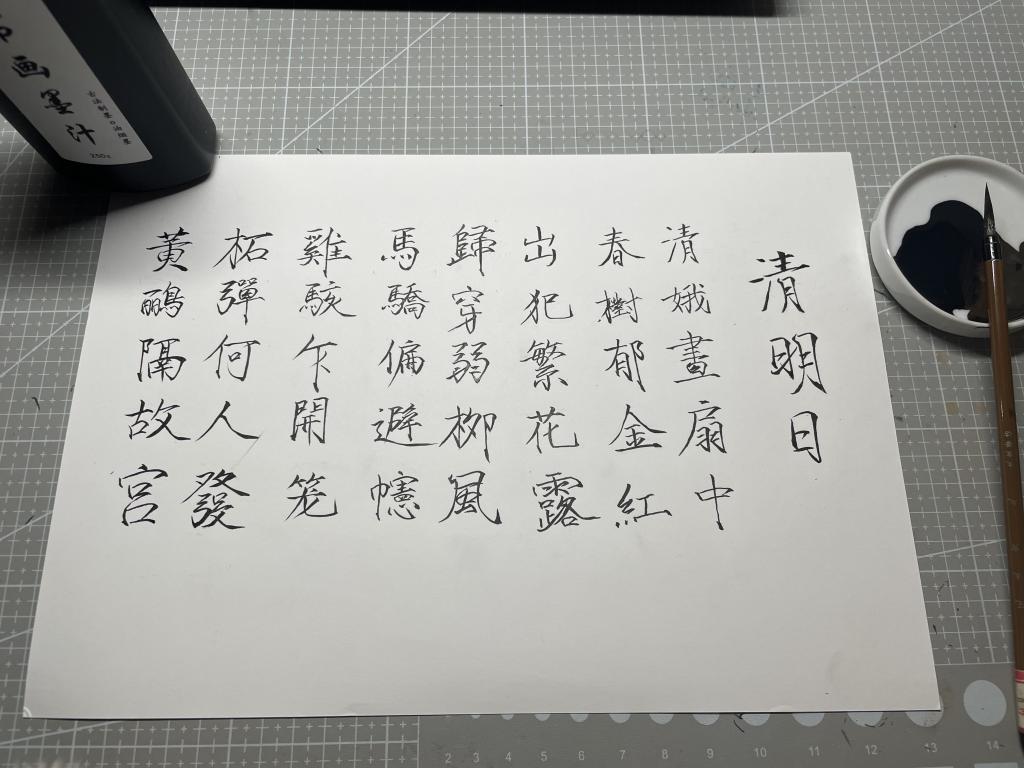 清明日
清娥畫扇中
春樹郁金紅
出犯繁花露
歸穿弱柳風
馬驕偏避幰
雞駭乍開笼
柘彈何人發
黃鸝隔故宮
画墨汁
250g
2 3 4 5 6 7 8 9 10 11 12 13 14